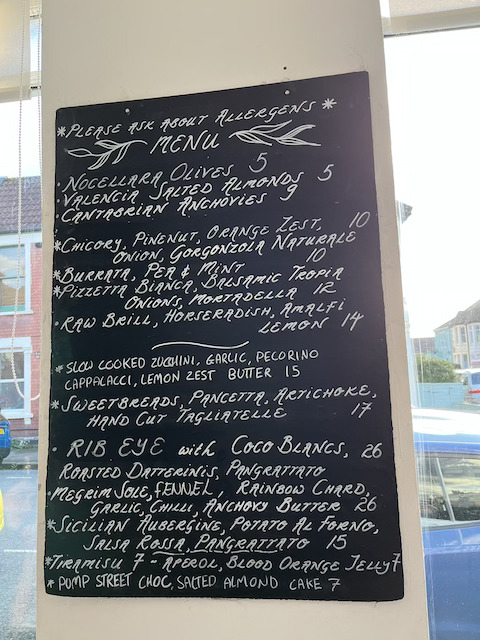 *PLEASE ASK ABOUT ALLERGENS *
MENU
· NOCELLARA OLIVES 5
· VALENCIA SALTED ALMONDS 5
· CANTABRIAN ANCHOVIES 9
*CHICORY, PINENUT, ORANGE ZEST, 10
ONION, GORGONZOLA NATURALE
*BURRATA, PEA & MINT 10
*PIZZETTA BIANCA, BALSAMIC TROPIA
ONIONS, MORTADELLA 12
· RAW BRILL, HORSERADISH, AMALFI
LEMON 14
* SLOW COOKED ZUCCHINI, GARLIC, PECORINO
CAPPALACCI, LEMON ZEST BUTTER 15
* SWEETBREADS, PANCETTA, ARTICHOKE,
HAND CUT TAGLIATELLE 17
· RIB EYE with COCO BLANCS, 26
ROASTED DATTERINIS, PANGRATTATO
· MEGRIM SOLE, FENNEL, RAINBOW CHARD,
GARLIC, CHILLI, ANCHOVY BUTTER 26
*SICILIAN AUBERGINE, POTATO AL FORNO,
SALSA ROSSA, PANGRATTATO 15
*TIRAMISU 7 - APEROL, BLOOD ORANGE JELLY 7
* PUMP STREET CHOC, SALTED ALMOND CAKE 7